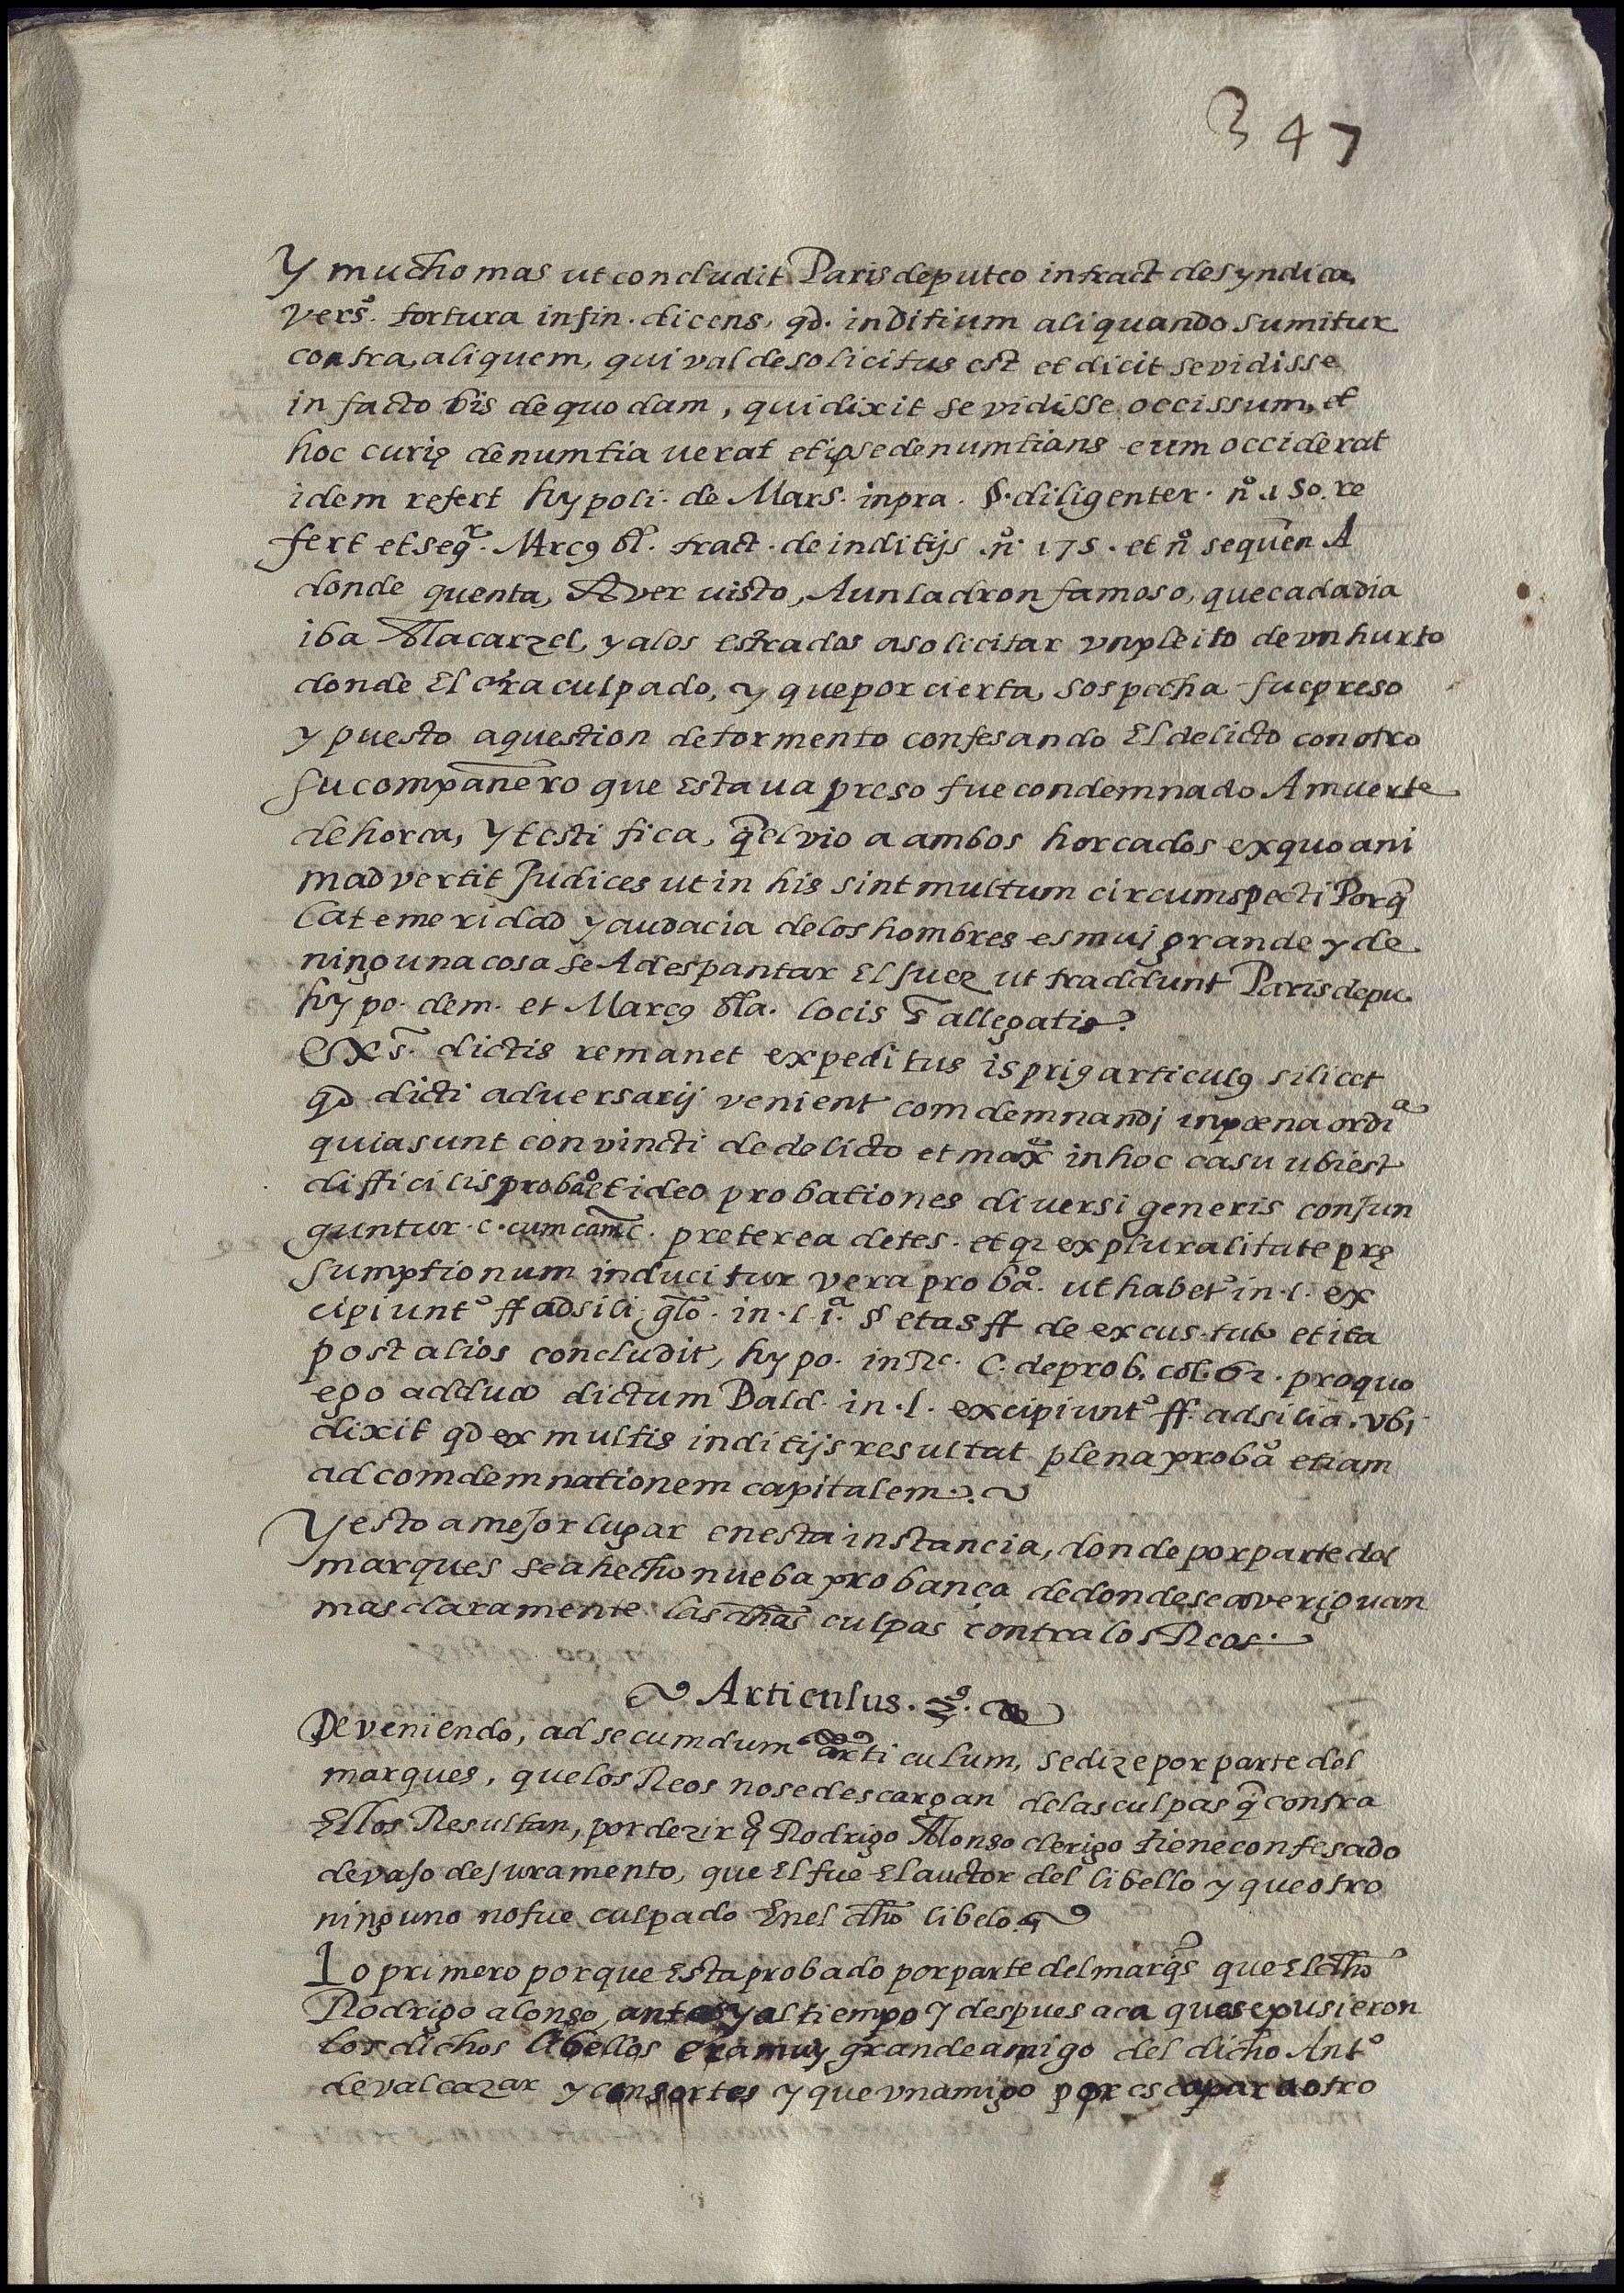 347
Y mucho mas ut concludit Paris de puteo in tract de syndica
vers.º tortura in fin. dicens, qd. inditium aliquando sumitur
contra, aliquem, qui valde solicitus est et dicit se vidisse
in facto bis de quodam, qui dixit se vidisse occissum, et
hoc curię denumtiauerat et ipse denumtians eum occiderat
idem refert hypoli. de Mars. in pra. §. diligenter. nº 150. re
fert et seqr. Marcꝰ bl. tract. de inditijs. nº. 175. et nº sequen A
donde quenta, Aver uisto, A un ladron famoso, que cada dia
iba Ala carzel, y a los estrados a solicitar vn pleito de vn hurto
donde El era culpado, y que por cierta, sospecha fue preso
y puesto a question de tormento confesando El delicto con otro
su compañero que Estaua preso fue condemnado A muerte
de horca, y testifica, q̃ el vio a ambos horcados ex quo ani
madvertit Judices ut in his sint multum circumspecti Porq̃
la temeridad y audacia de los hombres es mui grande y de
ninguna cosa se A despantar El Juez ut traddunt Paris de pu.
hypo. de m. et Marcꝰ bla. locis s̃ allegatis.
Ex s̃. dictis remanet expeditus is prigꝰ articulꝰ silicet
qd dicti adversarij venient comdemnandi in poena ordiª
quia sunt convincti de delicto et maxᵉ in hoc casu ubi est
difficilis probaº et ideo probationes diversi generis conjun
guntur. c. cum cam̃c. preterea de tes. et qz ex pluralitate prę
sumptionum inducitur vera probaº. ut habetº in. l. ex
cipiuntº ff ad sili. glo. in. l. 1ª. § etas ff de excus. tuto et ita
post alios concludit, hypo. in Rc. C. de prob. col. 62. pro quo
ego adduco dictum Bald. in. l. excipiuntº ff. ad silia. vbi
dixit qd ex multis inditijs resultat plena probaº etiam
ad comdemnationem capitalem.
Y esto a mejor lugar en esta instancia, donde por parte del
marques se a hecho nueba probança de donde se averiguan
mas claramente las dhas culpas contra los Reos.
Articulus. 2º.
Deveniendo, ad secumdum articulum, se dize por parte del
marques, que los Reos no se descargan de las culpas q̃ contra
Ellos Resultan, por dezir q̃ Rodrigo Alonso clerigo tiene confesado
devajo de juramento, que El fue El auctor del libello y que otro
ninguno no fue culpado En el dho libelo
Lo primero porque Esta probado por parte del marq̃s que El dho
Rodrigo alonso, antes y al tiempo y despues aca que se pusieron
los dichos libellos era muy grande amigo del dicho Antº
de valcazar y consortes y que vn amigo por escapar a otro